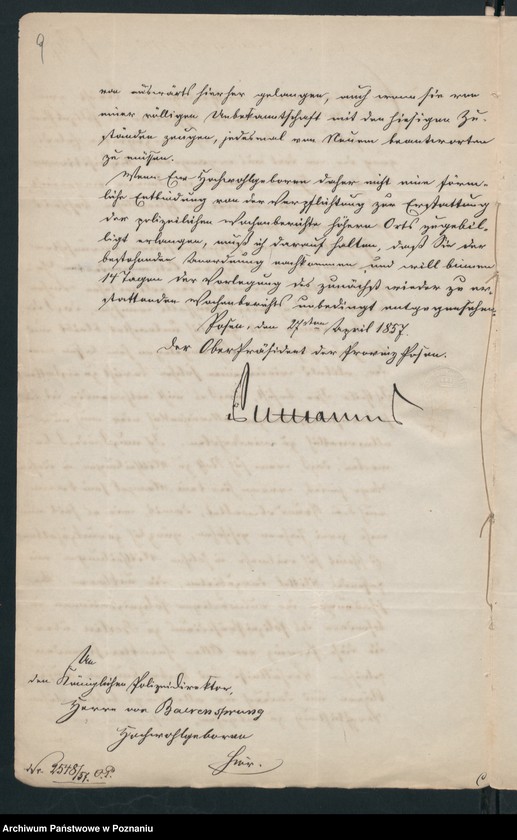 9
von auswärts hierher gelangen, auch wenn sie von
einer völligen Unbekanntschaft mit den hiesigen Zu-
ständen zeugen, jedesmal von Neuem beantworten
zu müssen.
Wenn Ew. Hochwohlgeboren daher nicht eine förm-
liche Entbindung von der Verpflichtung zur Erstattung
der polizeilichen Wochenberichte höhern Orts zugebil-
ligt erlangen, muß ich darauf halten, daß Sie der
bestehenden Anordnung nachkommen und will binnen
14 Tagen der Vorlegung des zunächst wieder zu er-
stattenden Wochenberichts unbedingt entgegensehen.
Posen, den 27sten April 1857.
Der OberPräsident der Provinz Posen.
An
den Königlichen Polizeidirektor,
Herrn von Baerensprung
Hochwohlgeboren
hier.
Nr. 2548/57. O.P.
Archiwum Państwowe w Poznaniu